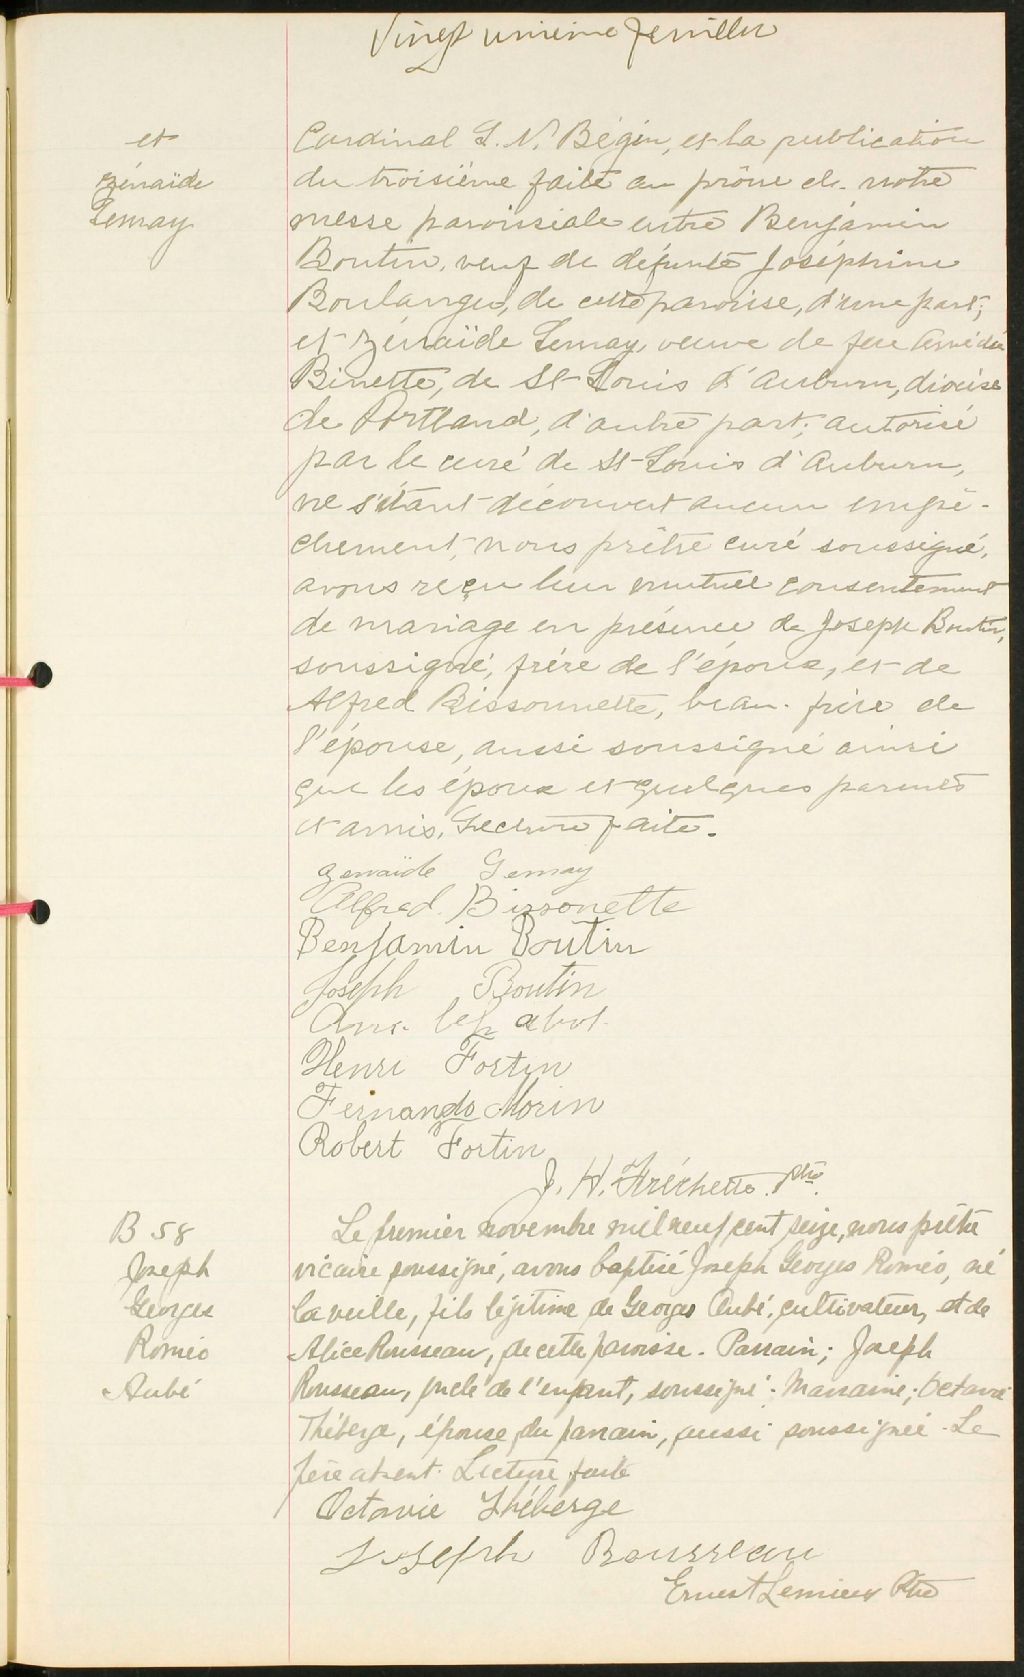 Vingt unième feuillet
et
Zénaïde
Lemay
Cardinal L. N. Bégin, et la publication
du troisième faite au prône de notre
messe paroissiale entre Benjamin
Boutin, veuf de défunte Joséphine
Boulanger, de cette paroisse, d'une part;
et Zénaïde Lemay, veuve de feu Amédée
Binette, de St-Louis d'Auburn, diocèse
de Portland, d'autre part; autorisé
par le curé de St-Louis d'Auburn,
ne s'étant découvert aucun empê-
chement, nous prêtre curé soussigné,
avons reçu leur mutuel consentement
de mariage en présence de Joseph Boutin,
soussigné, frère de l'époux, et de
Alfred Bissonnette, beau-frère de
l'épouse, aussi soussigné ainsi
que les époux et quelques parents
et amis. Lecture faite.
Zenaïde Lemay
Alfred. Bissonette
Benjamin Boutin
Joseph Boutin
Henri Fortin
Fernando Morin
Robert Fortin
J. H. Fréchette. ptre.
B 58
Joseph
Georges
Roméo
Aubé
Le premier novembre mil neuf cent seize, nous prêtre
vicaire soussigné, avons baptisé Joseph Georges Roméo, né
la veille, fils légitime de Georges Aubé, cultivateur, et de
Alice Rousseau, de cette paroisse. Parrain; Joseph
Rousseau, oncle de l'enfant, soussigné. Marraine; Octavie
Théberge, épouse du parrain, aussi soussignée. Le
père absent. Lecture faite
Octavie Théberge
Joseph Rousseau
Ernest Lemieux Ptre